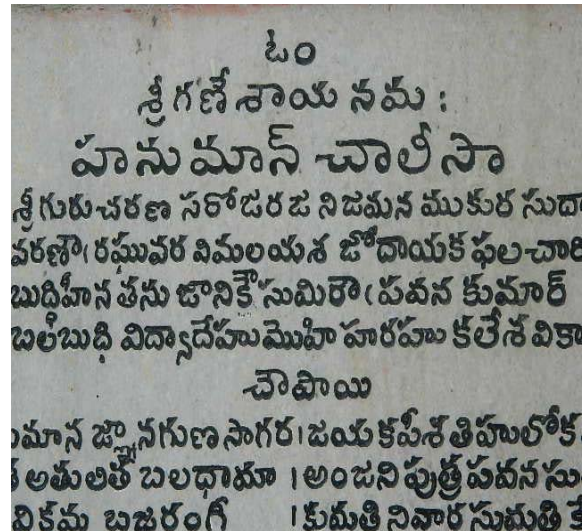 ఓం
శ్రీ గణే శాయ నమ :
హనుమాన్ చాలీసా
శ్రీ గురు చరణ సరోజరజ నిజమన ముకుర సుదా
వరణౌ రఘువర విమలయశ జోదాయక ఫలచారి
బుద్ధిహీన తను జానికౌ సుమిరౌ పవన కుమార్
బలబుద్ధి విద్యాదేహుమొహి హరహు కలేశ వికా
చౌపాయి
మాన జ్ఞానగుణ సాగర । జయ కపీశ తిహులోక
అతులిత బలధామా । అంజని పుత్ర పవన సు
విక్రమ బజరంగీ । కుమతి నివార సుమతి